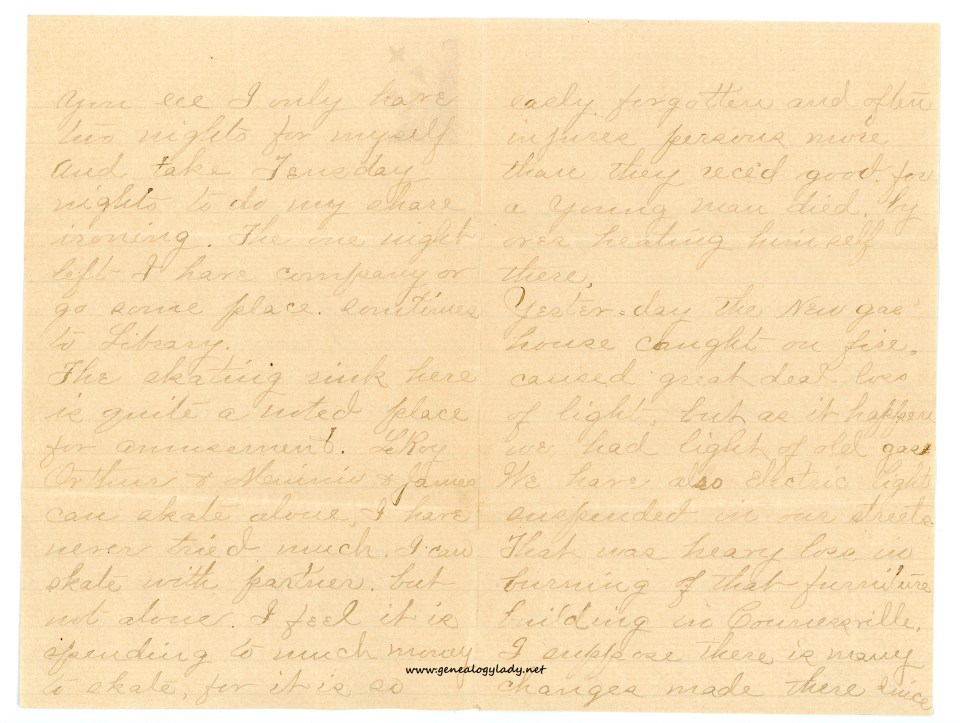 You see I only have
two nights for myself
and take Teusday
nights to do my share
ironing. The one night
left I have company or
go some place. somtimes
to Library.
The skating rink here
is quite a noted place
for amusement. LeRoy
Arthur & Minnie & James
can skate alone, I have
never tried much. I can
skate with partner. but
not alone. I feel it is
spending to much money
to skate, for it is so
easly forgotten and often
injures persons more
than they rec'd good. for
a young man died, by
over heating himself
there.
Yester=day the New gas
house caught on fire,
caused great deal loss
of light, but as it happen
we had light of old gas
We have also Electric light
suspended in our streets.
That was heavy loss in
burning of that furniture
building in Connersville.
I suppose there is many
changes made there since
www.genealogylady.net